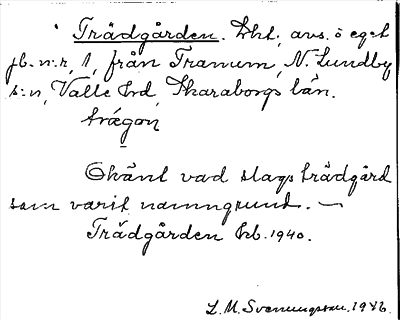 Trädgården. Lht, avs. o eget
jb.-n:r, 1, från Tranum, N. Lundby
s:n, Valle hrd, Skaraborgs län.
trǽgoɳ
Okänt vad slags trädgård
som varit namngrund. —
Trädgården kb. 1940.
L. M. Svenungsson. 1946.